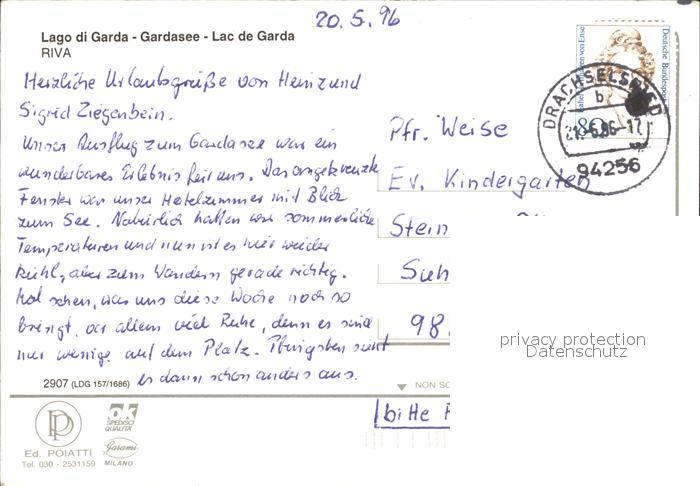 20.5.96
Lago di Garda - Gardasee - Lac de Garda
RIVA
Herzliche Urlaubsgrüße von Heinz und
Sigrid Ziegenbein.
Unser Ausflug zum Gardasee war ein
wunderbares Erlebnis für uns. Das angekreuzte
Fenster war unser Hotelzimmer mit Blick
zum See. Natürlich hatten wir sommerliche
Temperaturen und nun ist es hier wieder
kühl, aber zum Wandern gerade richtig.
Mal sehen, was uns diese Woche noch so
bringt, vor allem viel Ruhe, denn es sind
nur wenige auf dem Platz. Pfingsten sieht
es dann schon anders aus.
2907 (LDG 157/1686)
NON SC
Deutsche Bundespost
80
DRACHSELSRIED
b
21.-5.96-17
94256
Pfr. Weise
Ev. Kindergarten
Stein
Suh
98.
bitte
privacy protection
Datenschutz
Ed. POIATTI
Tel. 030 - 2531159
ok
SPEDISCI
QUALITÀ
Garami
MILANO